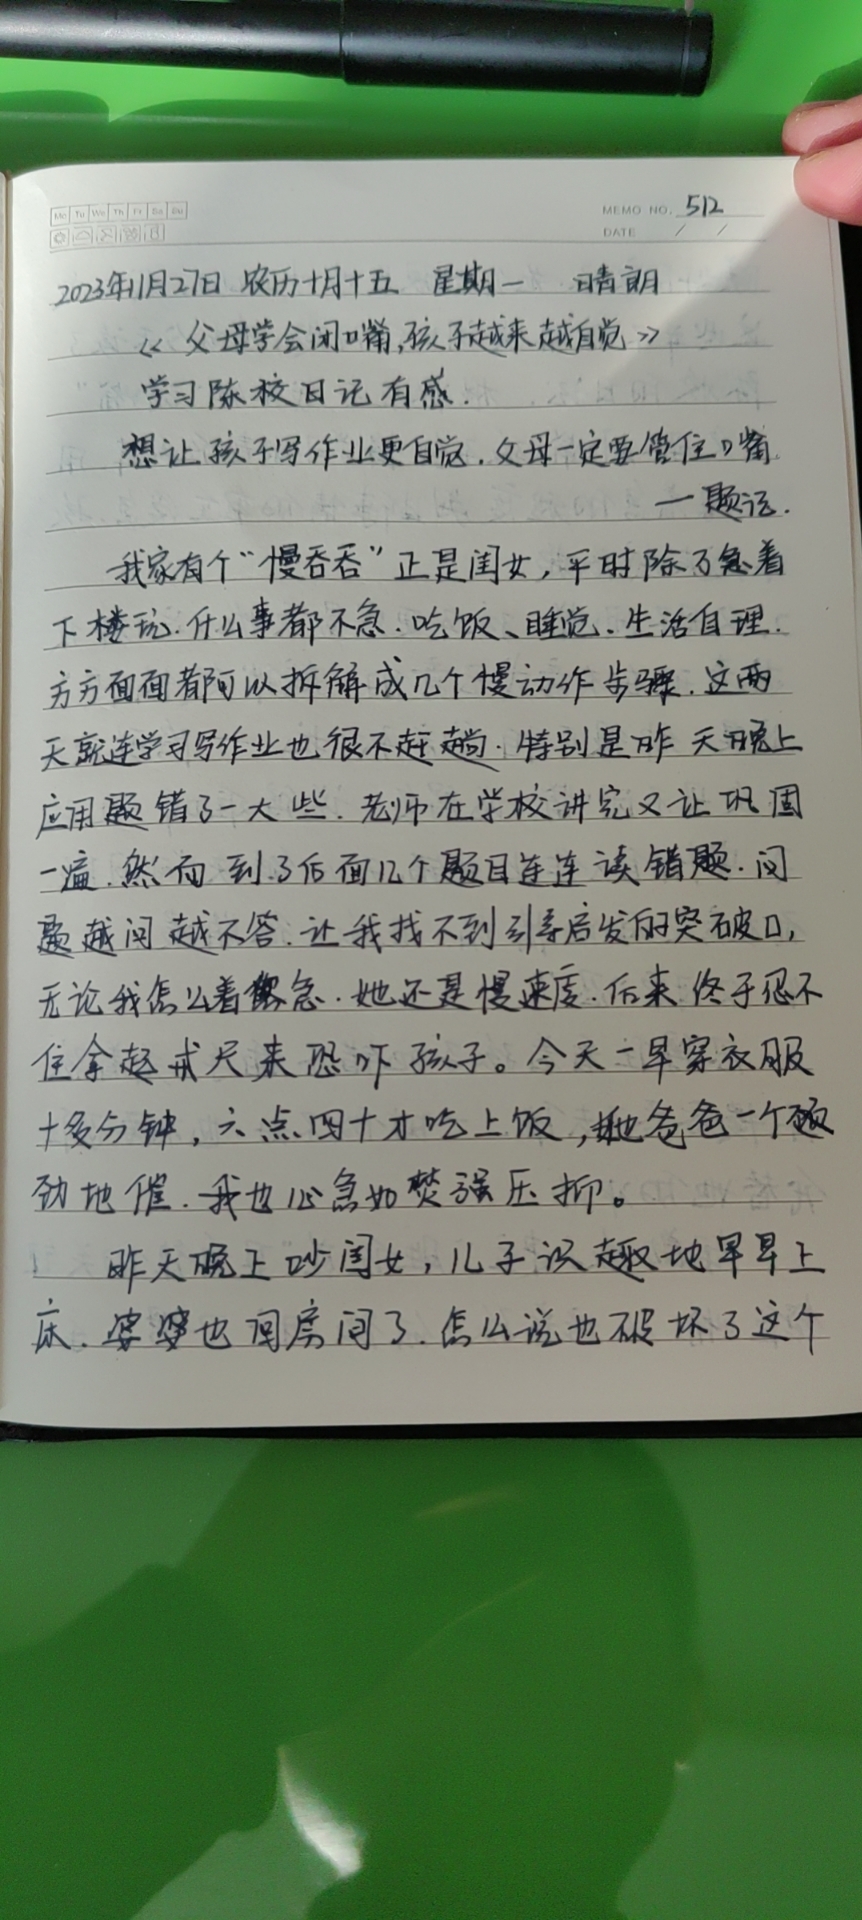 Mo Tu We Th Fr Sa Su
MEMO NO. 512
DATE / /
2023年11月27日 农历十月十五 星期一 晴朗
《父母学会闭嘴,孩子越来越自觉》
学习陈校日记有感.
想让孩子写作业更自觉.父母一定要管住嘴
一题记.
我家有个“慢吞吞”正是闺女,平时除了急着
下楼玩.什么事都不急.吃饭、睡觉.生活自理.
方方面面都可以拆解成几个慢动作步骤.这两
天就连学习写作业也很不赶趟.特别是昨天晚上
应用题错了一大些.老师在学校讲完又让巩固
一遍.然而到了后面几个题目连连读错题.问
题越问越不答.让我找不到引导启发的突破口,
无论我怎么着急.她还是慢速度.后来终于忍不
住拿起戒尺来恐吓孩子。今天一早穿衣服
十多分钟,六点四十才吃上饭,她爸爸一个顽
劲地催.我也心急如焚强压抑。
昨天晚上吵闺女,儿子识趣地早早上
床.婆婆也回房间了.怎么说也破坏了这个